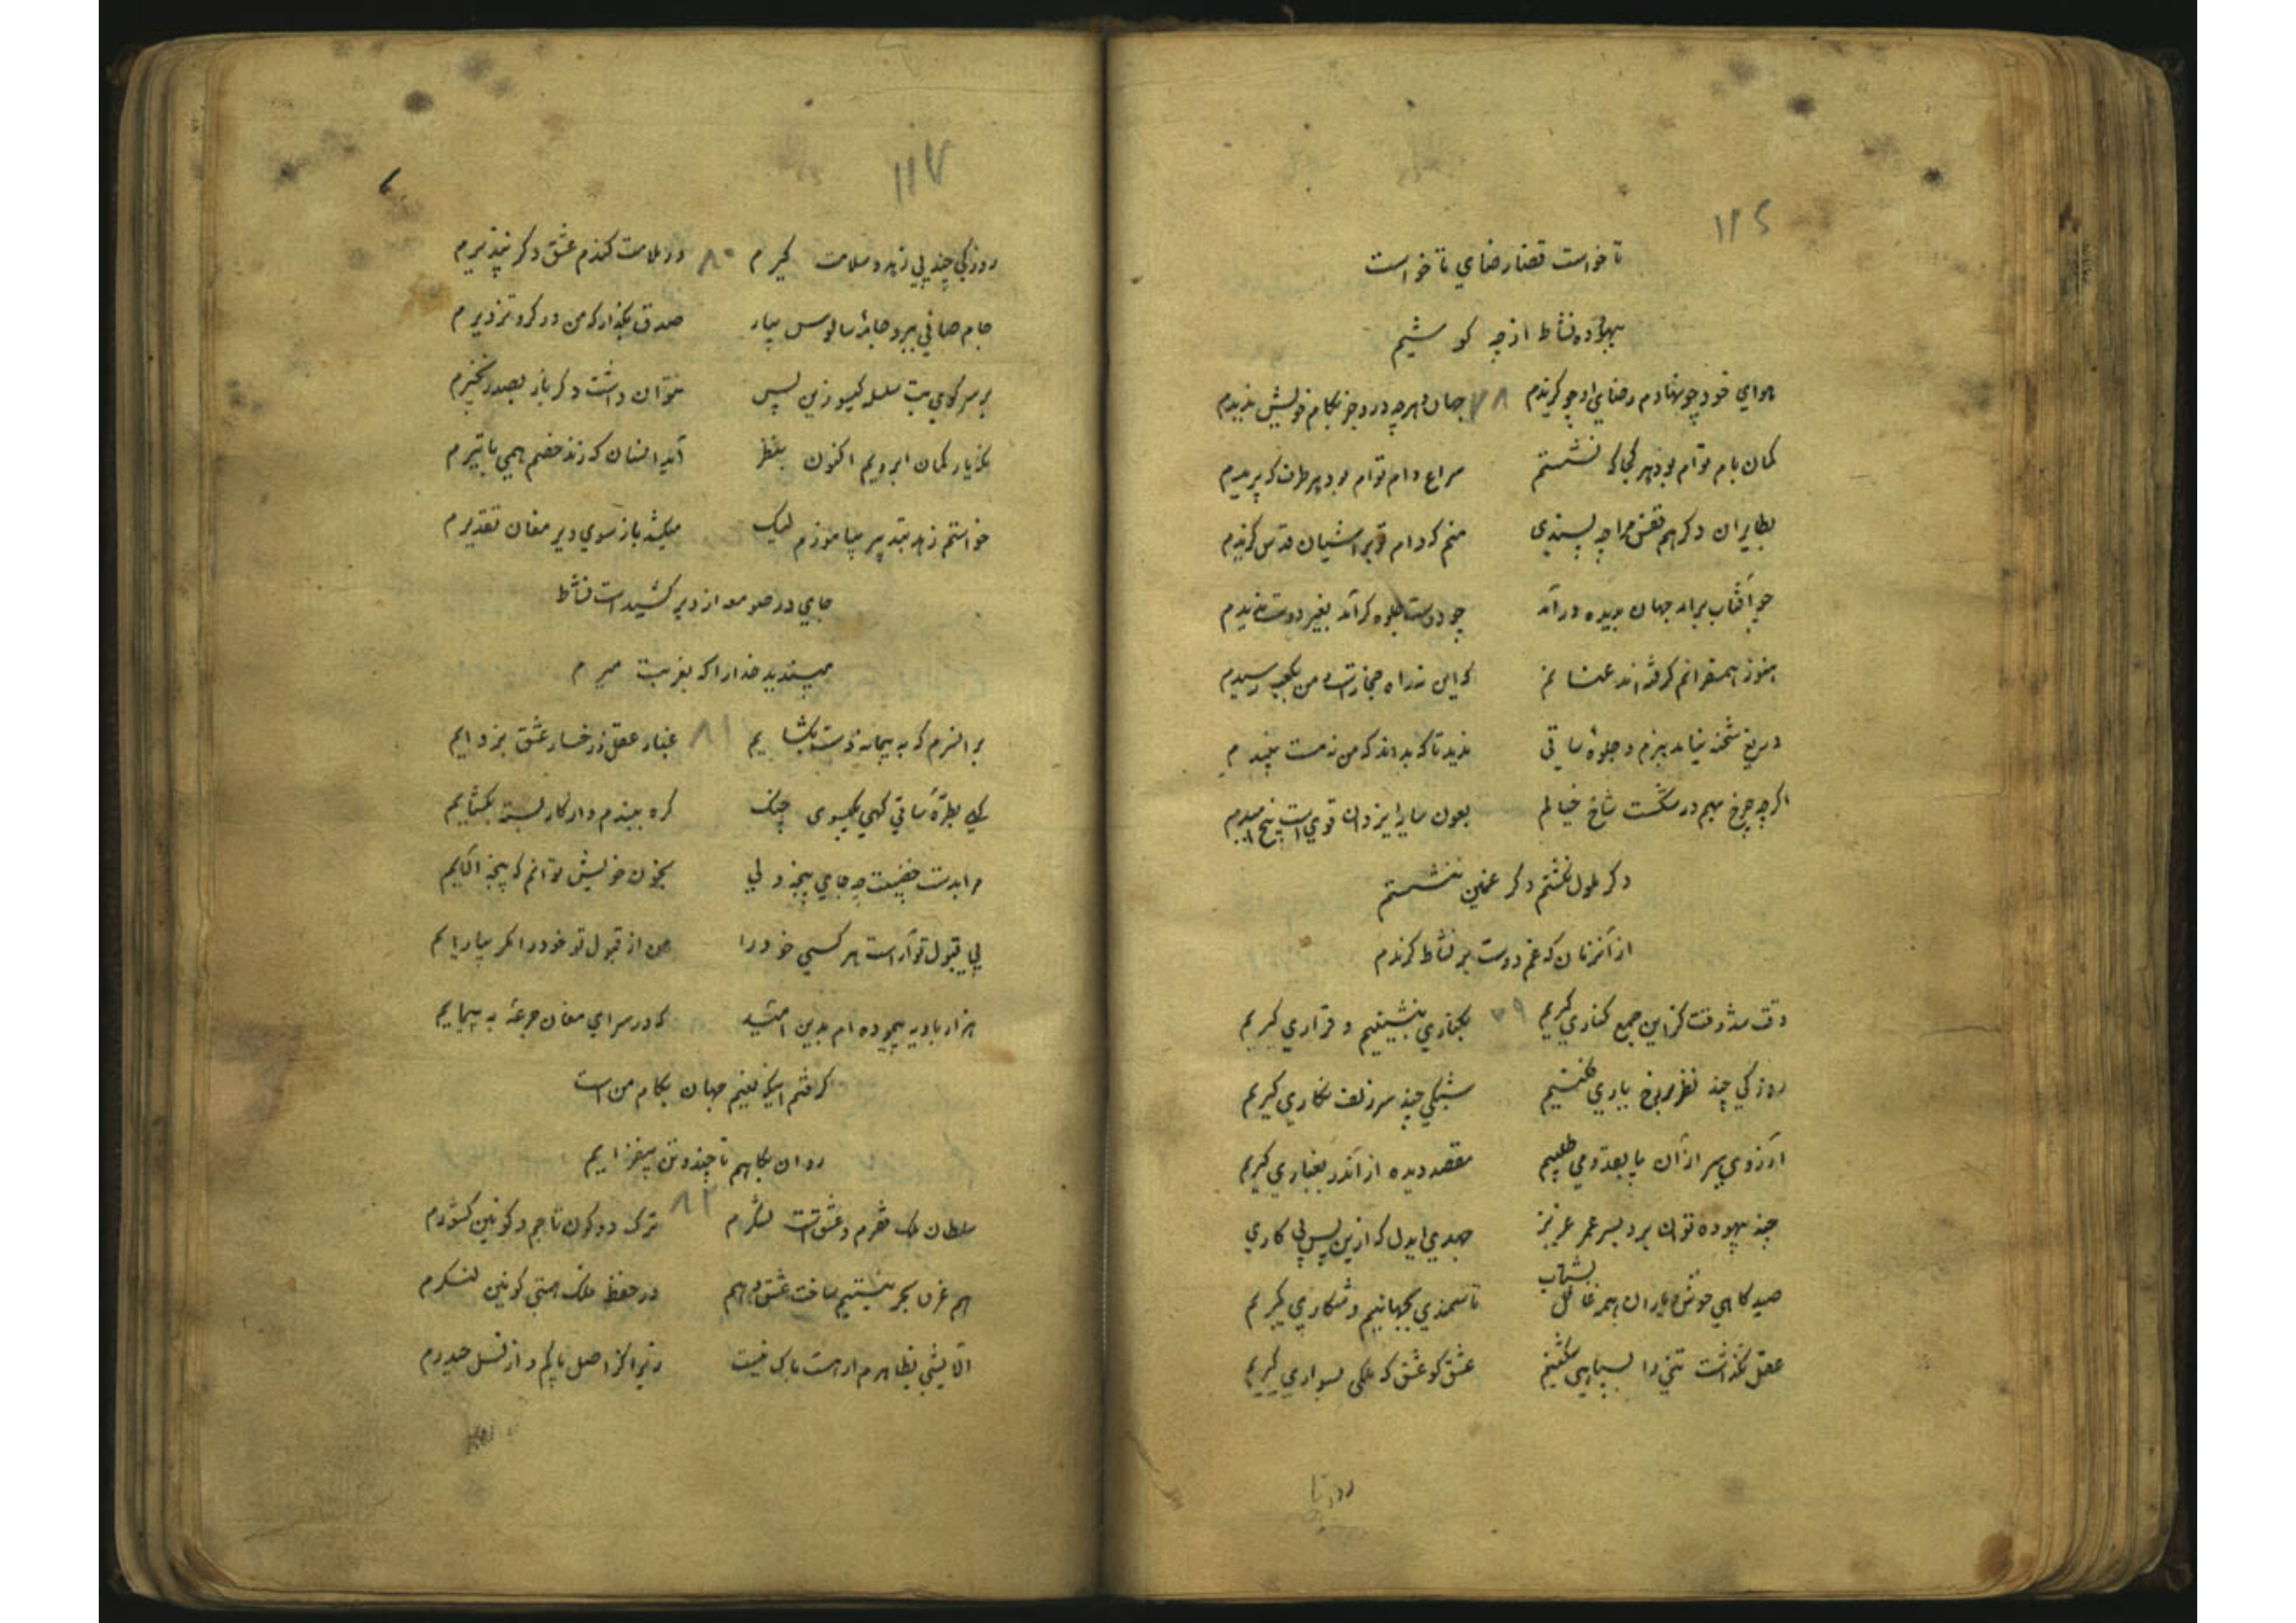 ۱۱۶
تا خواست قضا رضای ما خواست
بیهوده نشاط از چه کوشیم
هوای خود چو نهادم رضای او چو گزیدم ۷۸ جهان و هرچه درو جز بکام خویش ندیدم
کمان بام توام بود بهر کجا که نشستم سراغ دام توام بود بهر طرف که پریدم
بطایران دگر هم قفس مرا چه پسندی منم که دام تو بر آشیان قدس گزیدم
چو آفتاب برآمد جهان بدیده درآمد چو دوست جلوه گر آمد بغیر دوست ندیدم
هنوز همسفرانم گرفته اند عنانم که این نه راه حجازست و من بکعبه رسیدم
دریغ شحنه نیامد ببزم و جلوهٔ ساقی ندید تا که بداند که من نه مست نبیدم
اگرچه چرخ بهم در شکست شاخ خیالم بعون سایه یزدان قوی است بیخ امیدم
دگر ملول نگشتم دگر غمین ننشستم
از آنزمان که غم دوست بر نشاط گزیدم
وقت شد وقت کزین جمع کناری گیریم ۷۹ بکناری بنشینیم و قراری گیریم
روزکی چند نظر بر رخ یاری فکنیم شبکی چند سر زلف نگاری گیریم
آرزوی سر از آن پا بعدم می طلبیم مقصد دیده از آن در بغباری گیریم
چند بیهوده توان برد بسر عمر عزیز جهدی ایدل که ازین پس پی کاری
بشتاب
صیدگاهی خوش و یاران همه غافل تا سمندی بجهانیم و شکاری گیریم
عقل نگذاشت تنی را بسپاهی شکنیم عشق کو عشق که ملکی بسواری گیریم
روزکی
۱۱۷
روزکی چند پی زهد و سلامت گیرم ۸۰ ور ملامت کندم عشق دگر نپذیرم
جام صافی ببر و جامهٔ سالوس بیار صدق بگذار که من در گرو تزویرم
بر سر کوی بت سلسله گیسو زین پس نتوان داشت دگر باز بصد زنجیرم
بگذار کمان ابرویم اکنون بنظر آید انسان که زند خصم همی با تیرم
خواستم زهد بتدبیر بیاموزم لیک میکشد باز سوی دیر مغان تقدیرم
جای در صومعه از دیر کشیدست نشاط
مپسندید خدا را که بغربت میرم
بر آنسرم که به پیمانه دست بگشایم ۸۱ غبار عقل ز رخسار عشق بزدایم
گهی بطرهٔ ساقی گهی بگیسوی چنگ گره ببندم و از کار بسته بگشایم
مرا بدست خضیبت چه جای پنجه ولی بخون خویش توانم که پنجه آلایم
پی قبول تو آراست هر کسی خود را من از قبول تو خود را مگر بیارایم
هزار بادیه پیموده ام بدین امید که در سرای مغان جرعهٔ به پیمایم
گرفتم اینکه بغیتم جهان بکام من است
روان بکاهم تا چند و تن بیفزایم
سلطان ملک فقرم و عشق است لشکرم ۸۲ ترک دو کون تاجم و کونین کشورم
هم غرق بحر نیستیم ساخت عشق و هم در حفظ ملک هستی کونین لنگرم
آلایشی بظاهرم ار هست باک نیست زیرا که ز اصل پاکم و از نسل حیدرم